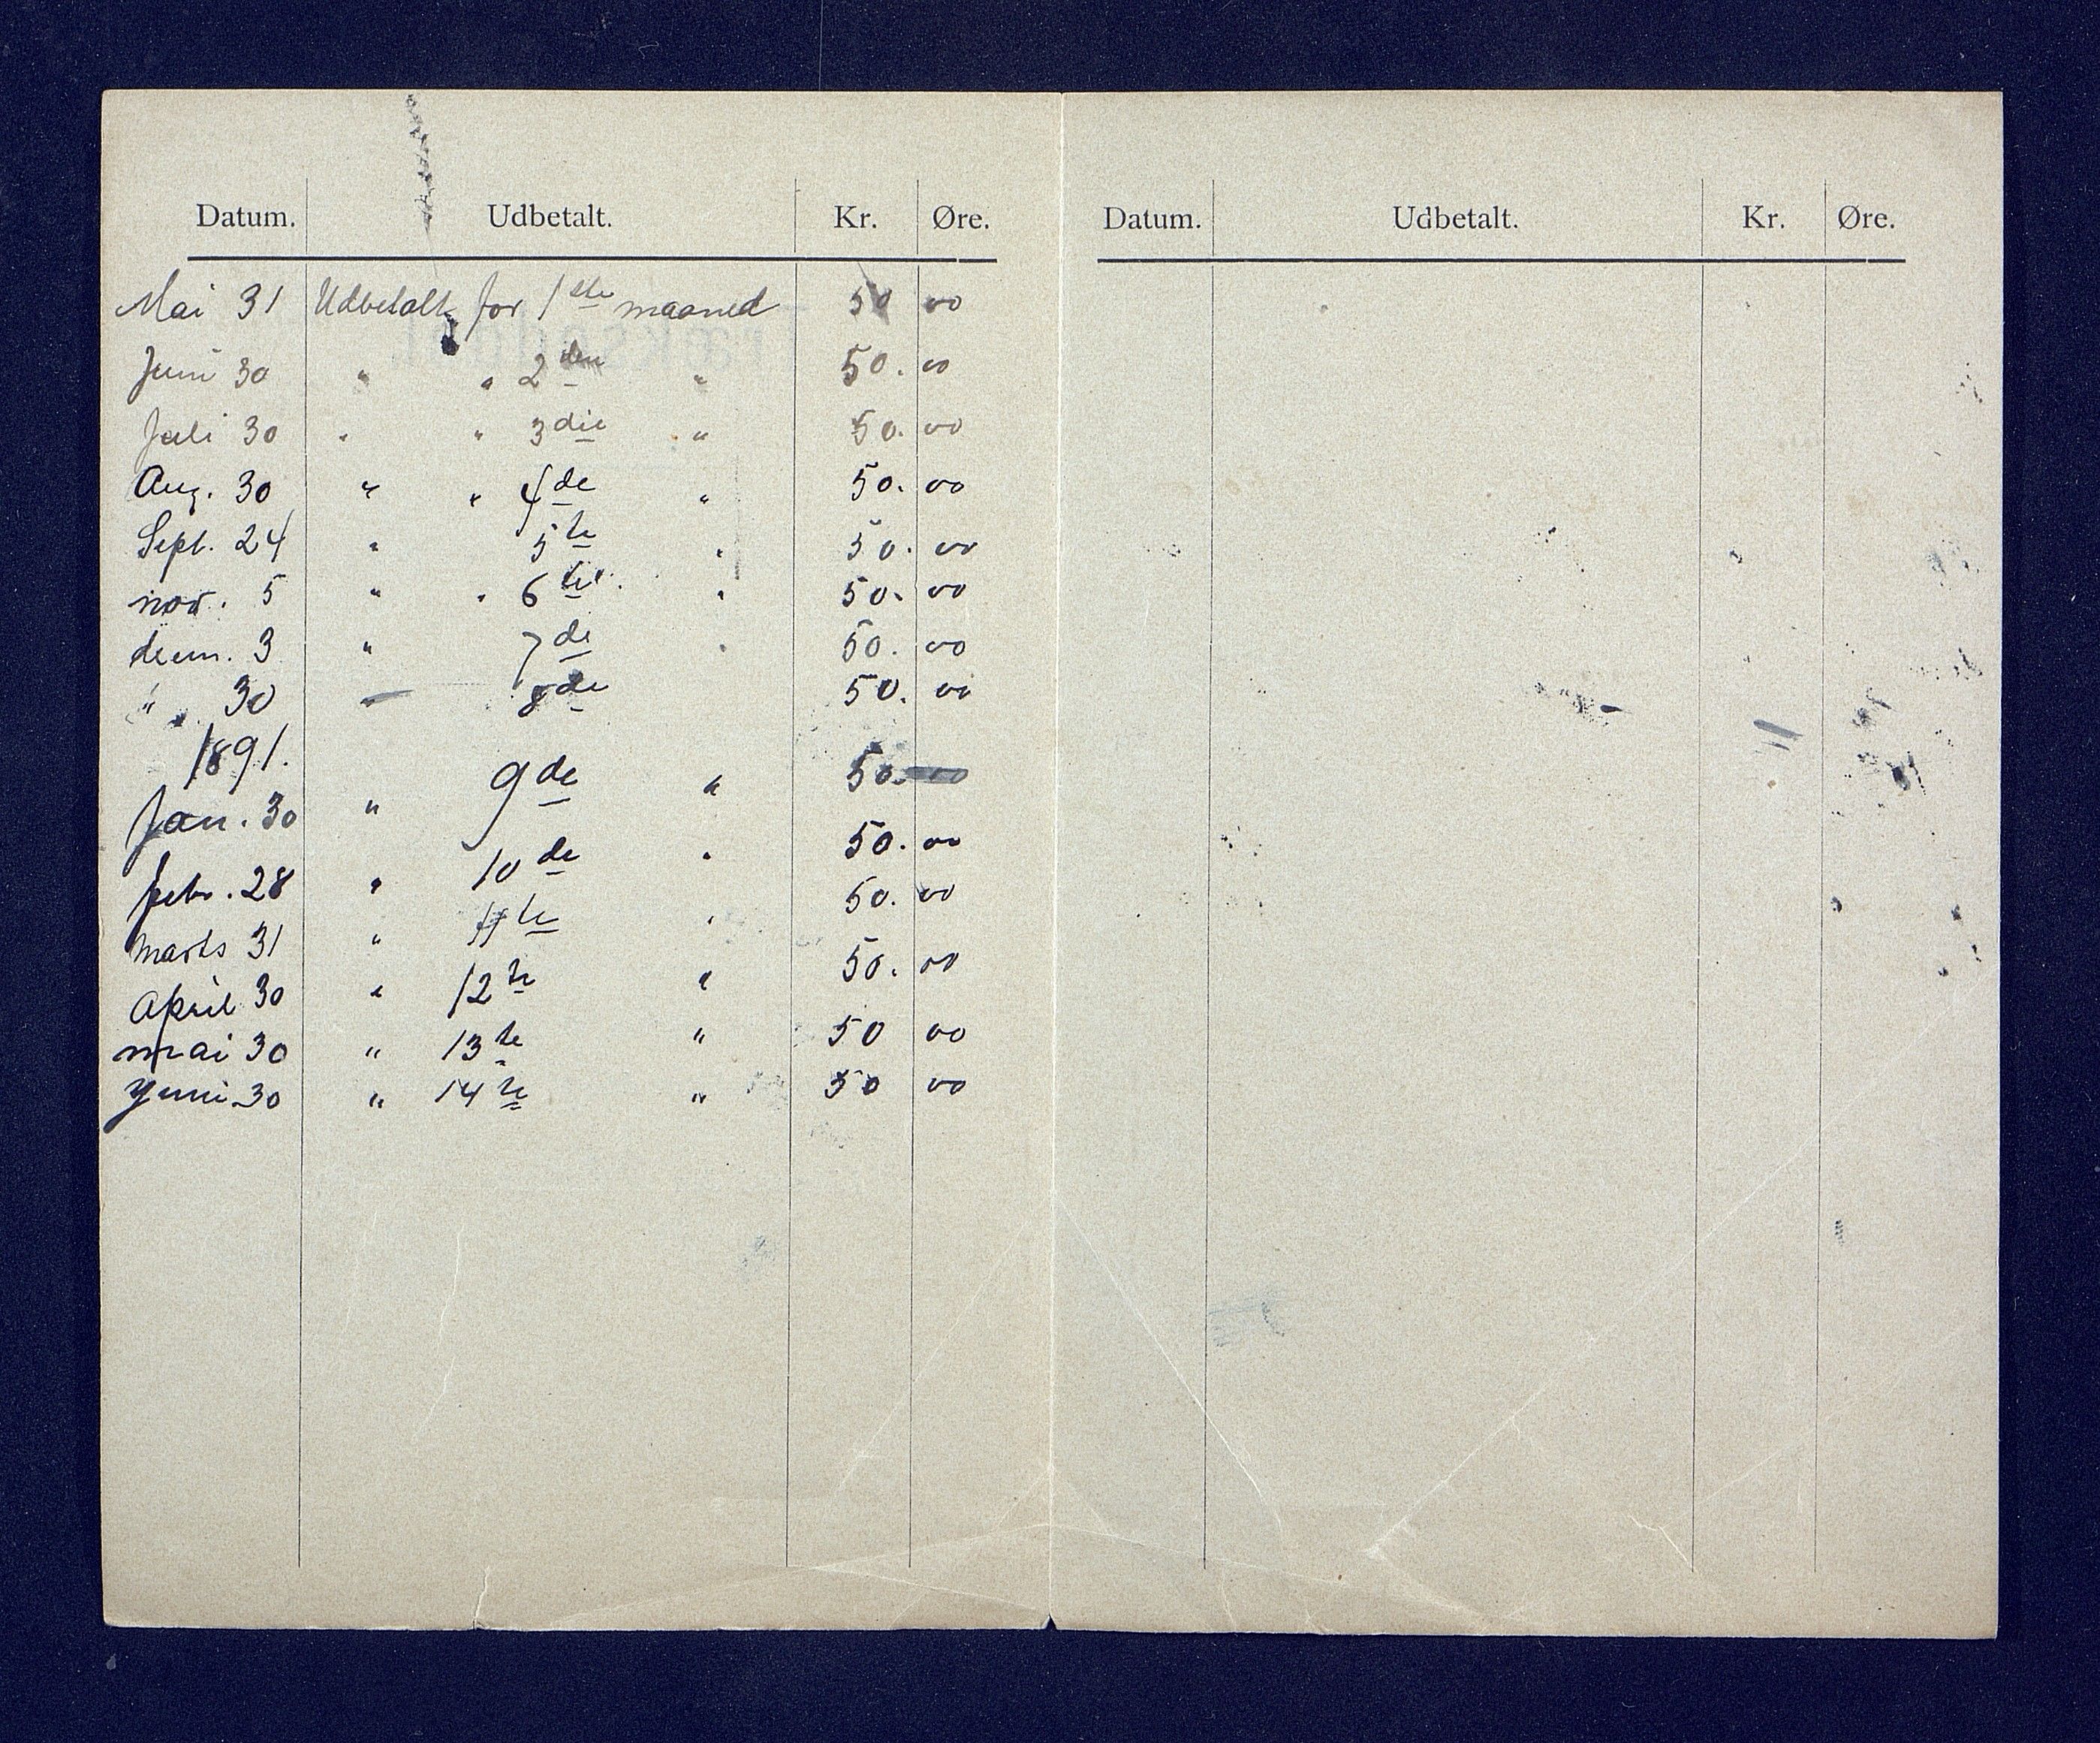 Datum. Udbetalt. Kr. Øre.
Mai 31 Udbetalt for 1ste maaned 50 00
Juni 30 " " 2den " 50. 00
Juli 30 " " 3die " 50. 00
Aug. 30 " " 4de " 50. 00
Sept. 24 " 5te " 50. 00
nov. 5 " " 6te " 50. 00
decem. 3 " 7de " 50. 00
" 30 — 8de 50. 00
1891.
Jan. 30 " 9de " 50. 00
febr. 28 " 10de " 50. 00
marts 31 " 11te " 50. 00
April 30 " 12te " 50. 00
mai 30 " 13te " 50 00
Juni 30 " 14te " 50 00
Datum. Udbetalt. Kr. Øre.